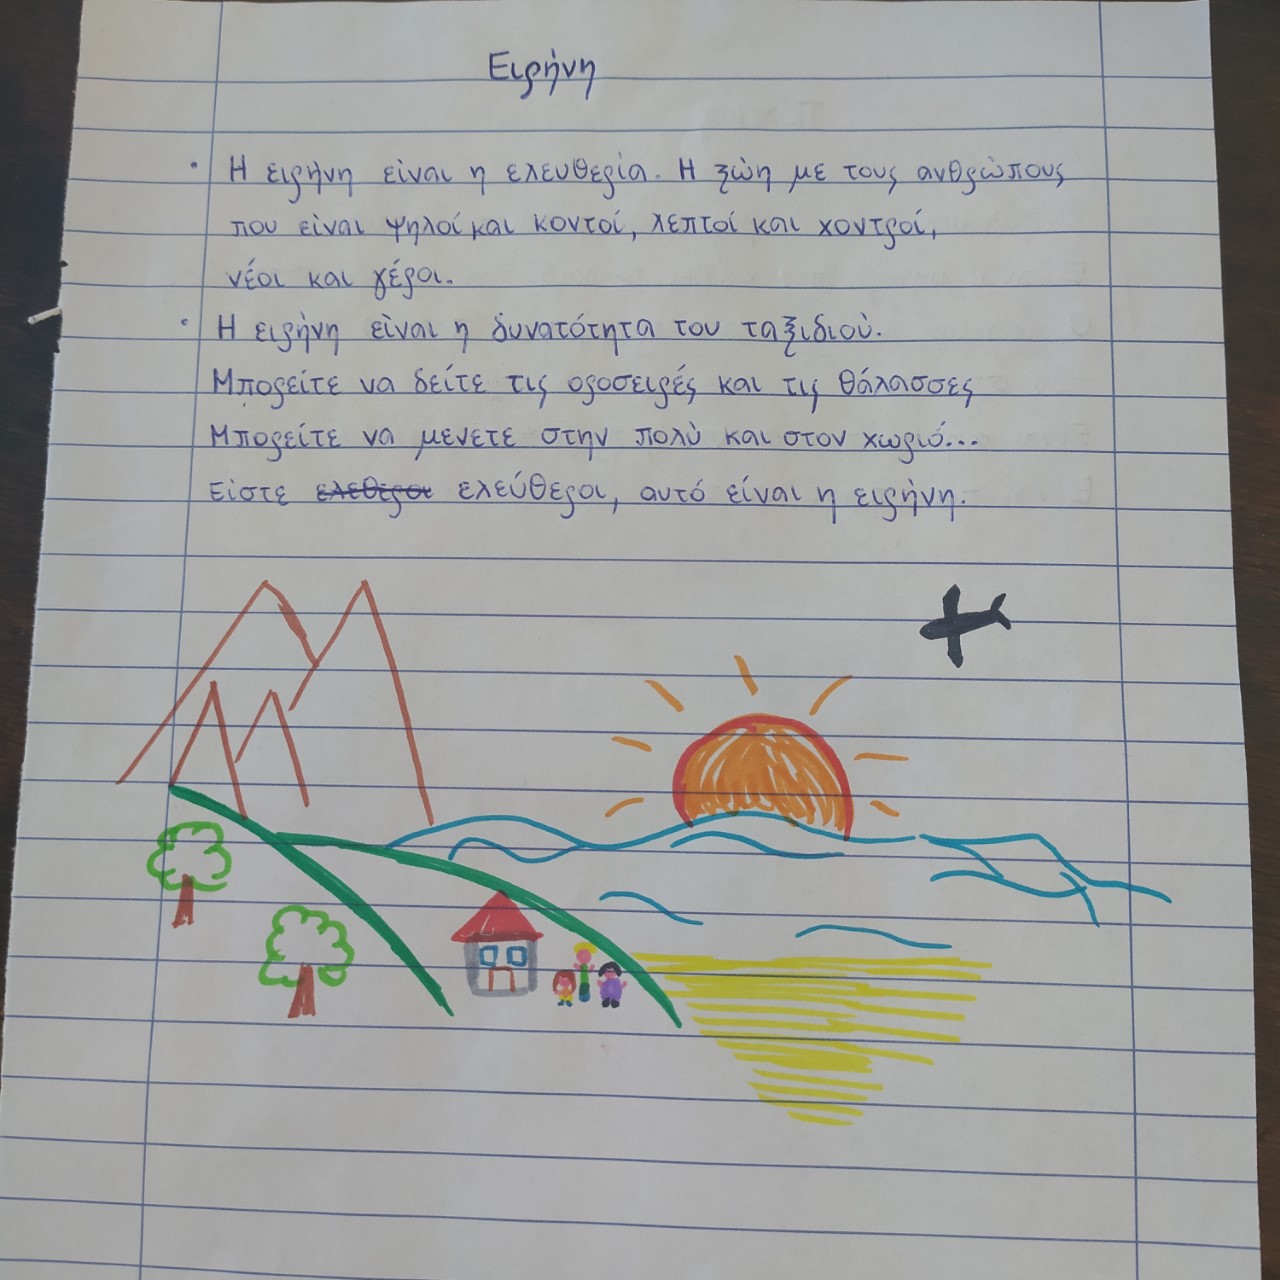 Ειρήνη
· Η ειρήνη είναι η ελευθερία. Η ξώη με τους ανθρώπους
που είναι ψηλοί και κοντοί, λεπτοί και χοντροί,
νέοι και γέροι.
· Η ειρήνη είναι η δυνατότητα του ταξιδιού.
Μπορείτε να δείτε τις οροσειρές και τις θάλασσες
Μπορείτε να μενετε στην πολύ και στον χωριό...
Είστε ελεθεροι ελεύθεροι, αυτό είναι η ειρήνη.